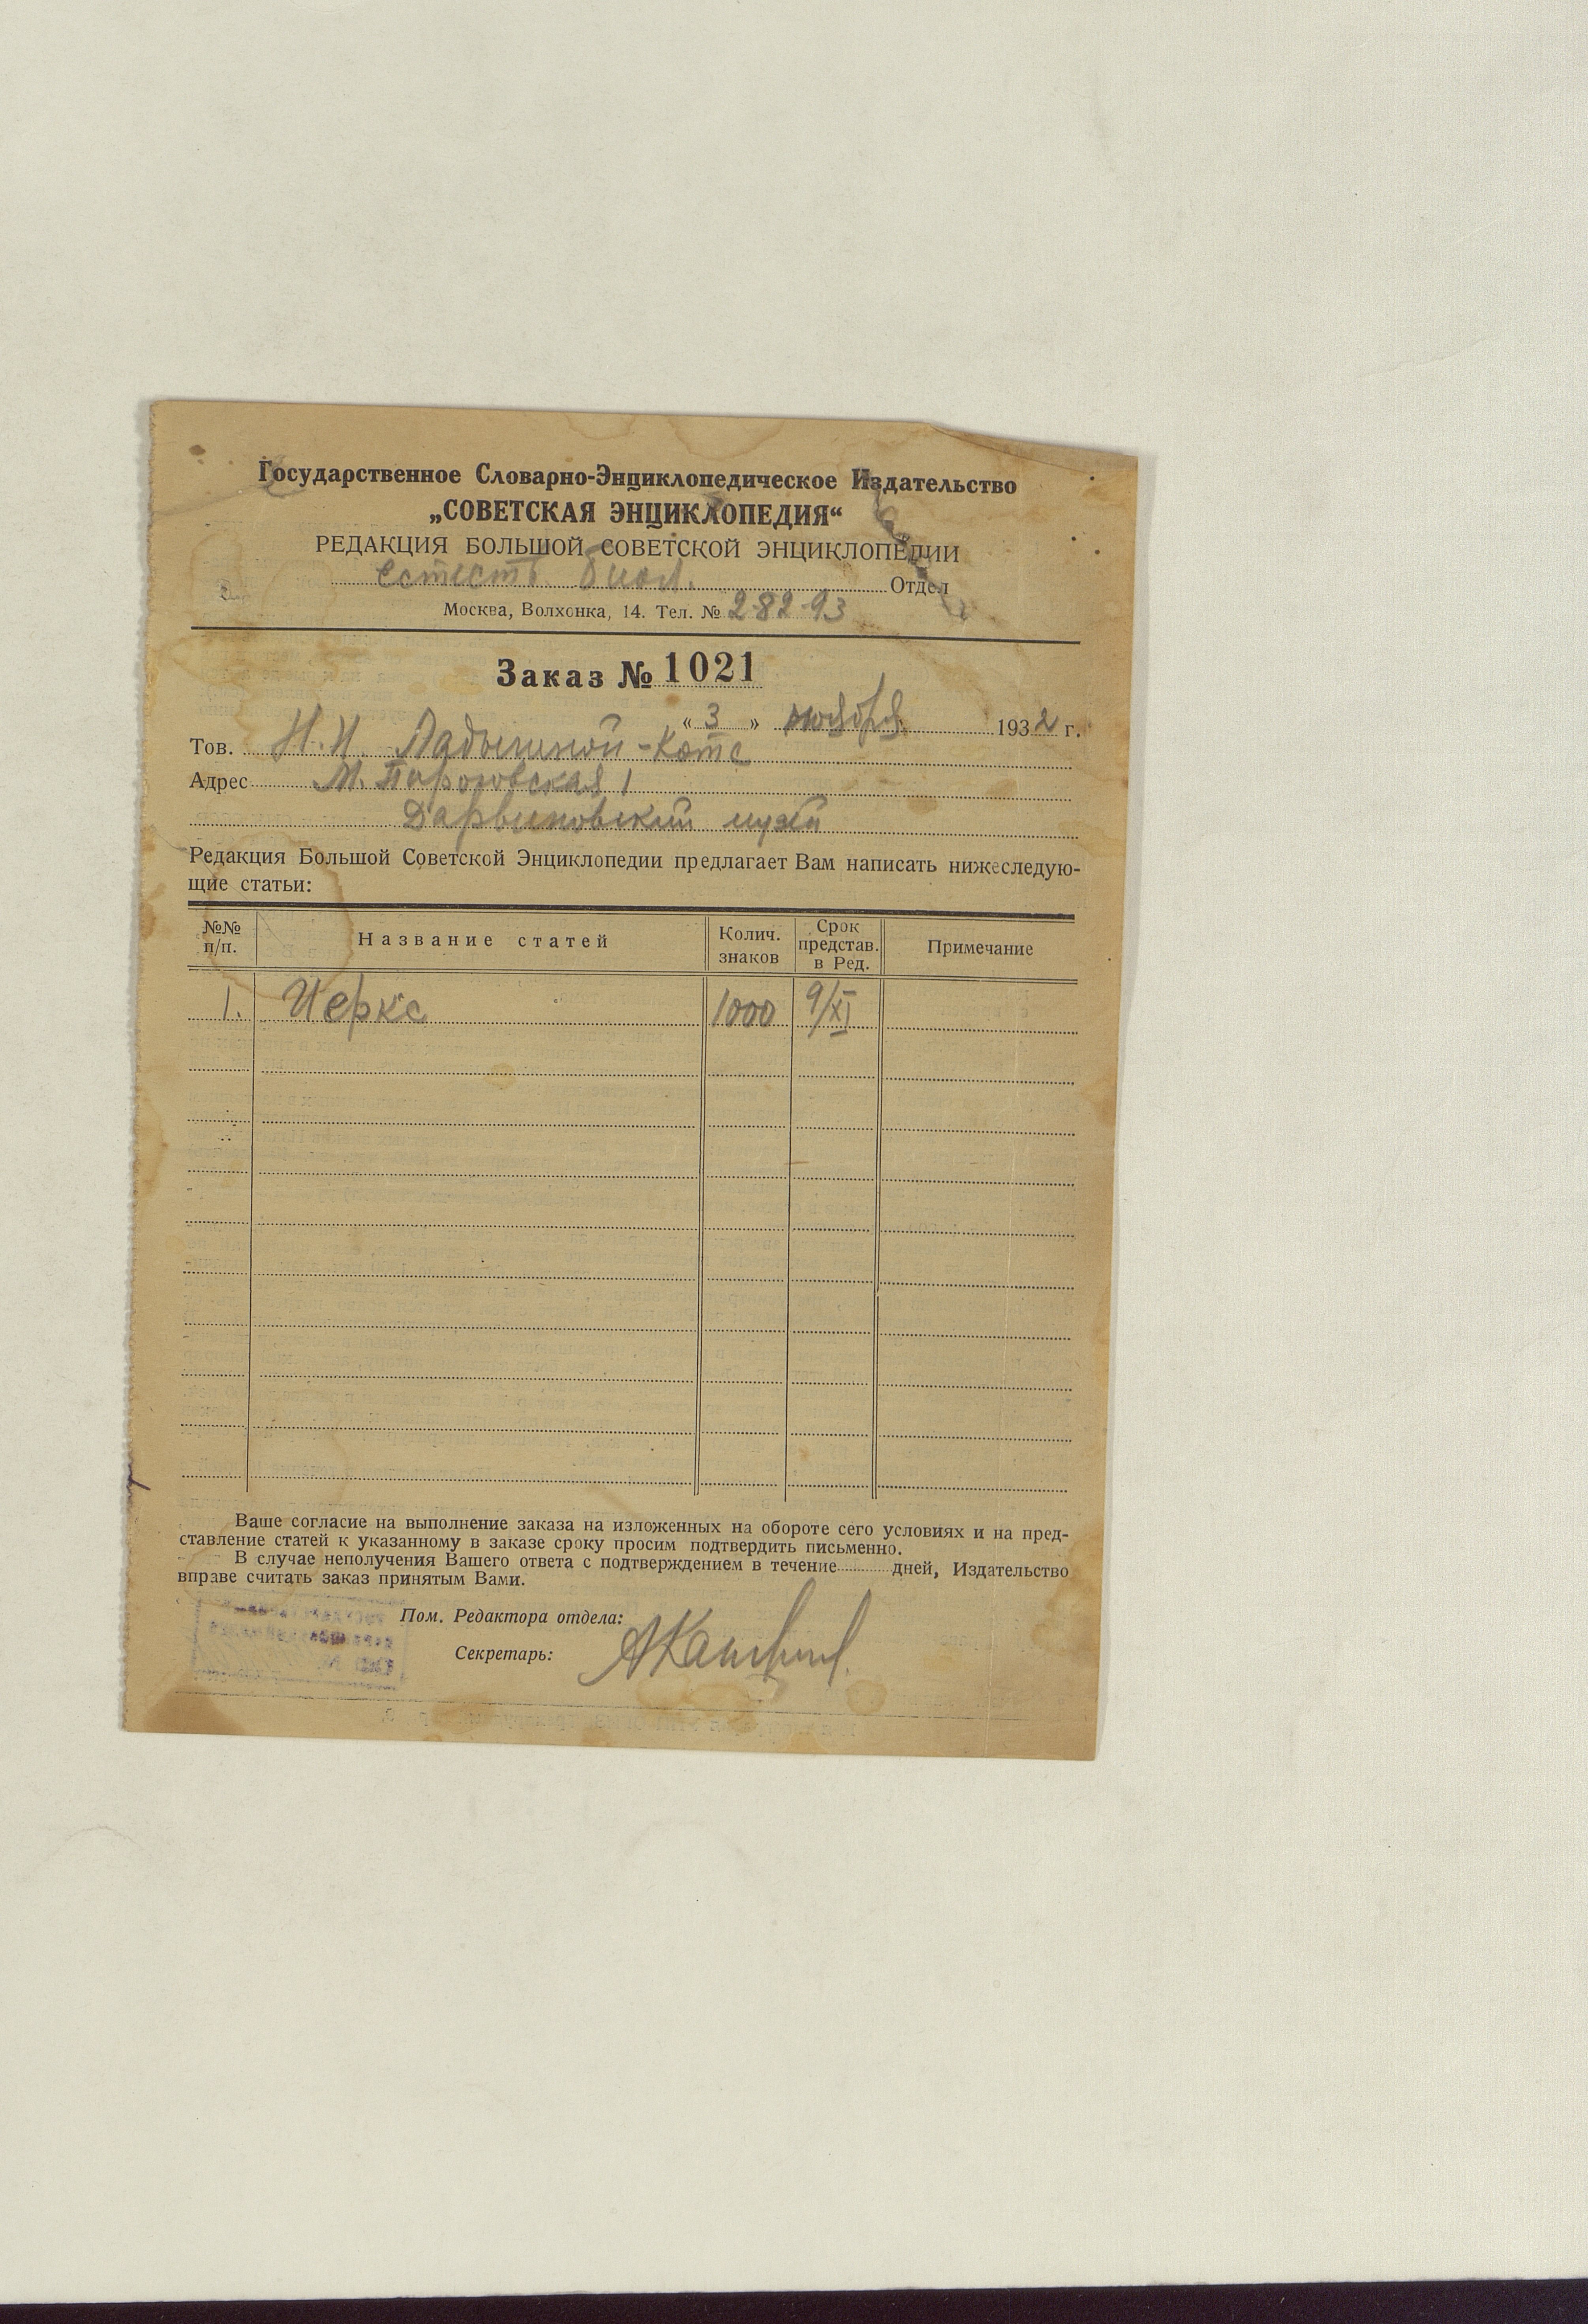 Государственное Словарно-Энциклопедическое Издательство
„СОВЕТСКАЯ ЭНЦИКЛОПЕДИЯ“
РЕДАКЦИЯ БОЛЬШОЙ СОВЕТСКОЙ ЭНЦИКЛОПЕДИИ
естеств. биол. Отдел
Москва, Волхонка, 14. Тел. № 2-82-93
Заказ № 1021
« 3 » ноября 1932 г.
Тов. Н.Н. Ладыгиной-Котс
Адрес М. Пироговская 1
Дарвиновский музей
Редакция Большой Советской Энциклопедии предлагает Вам написать нижеследую-
щие статьи:
№№ п/п. Название статей Колич. знаков Срок представ. в Ред. Примечание
1. Иеркс 1000 9/XI
Ваше согласие на выполнение заказа на изложенных на обороте сего условиях и на пред-
ставление статей к указанному в заказе сроку просим подтвердить письменно.
В случае неполучения Вашего ответа с подтверждением в течение дней, Издательство
вправе считать заказ принятым Вами.
Пом. Редактора отдела:
Секретарь: